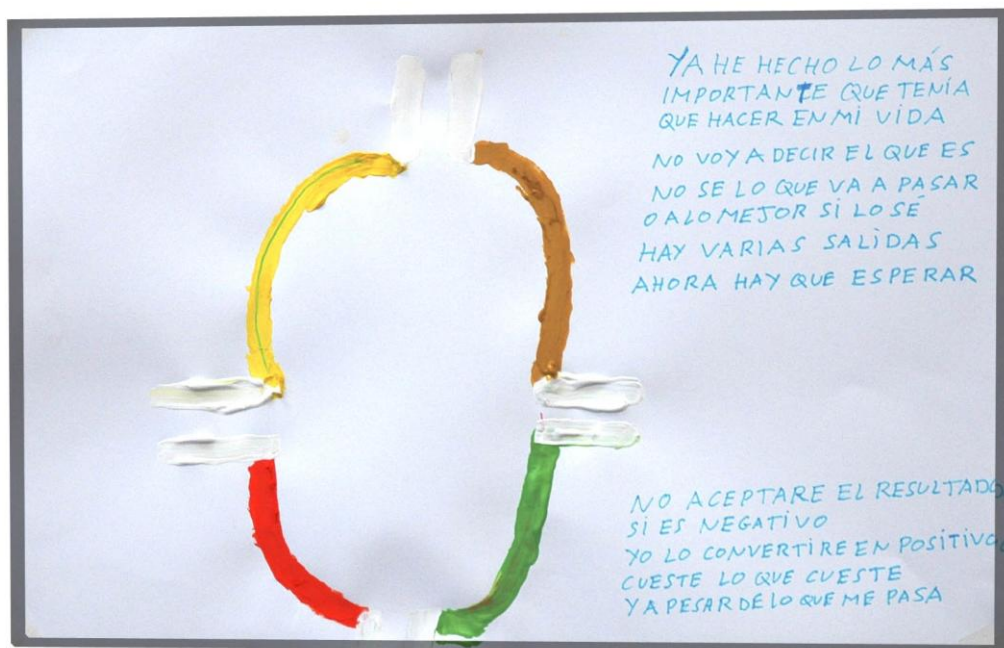 YA HE HECHO LO MÁS
IMPORTANTE QUE TENÍA
QUE HACER EN MI VIDA
NO VOY A DECIR EL QUE ES
NO SE LO QUE VA A PASAR
O A LO MEJOR SI LO SÉ
HAY VARIAS SALIDAS
AHORA HAY QUE ESPERAR
NO ACEPTARE EL RESULTADO
SI ES NEGATIVO
YO LO CONVERTIRE EN POSITIVO
CUESTE LO QUE CUESTE
Y A PESAR DE LO QUE ME PASA